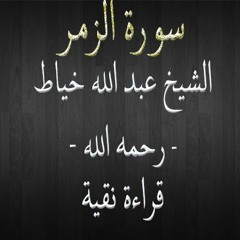 سورة الزمر
الشيخ عبد الله خياط
- رحمه الله -
قراءة نقية